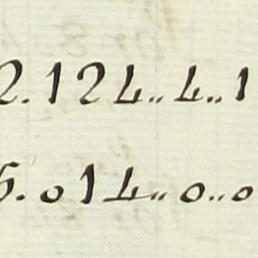 2.124.. 4.. 1
5.014.. 0.. 0